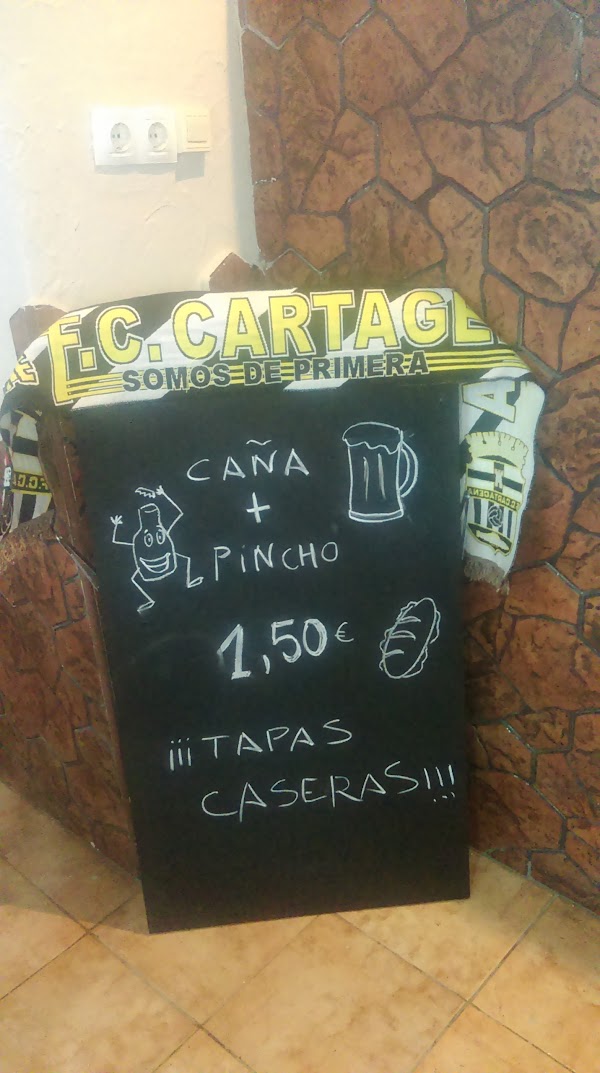 F.C. CARTAGE
SOMOS DE PRIMERA
F.C. CARTAGENA
CAÑA
+
PINCHO
1,50€
¡¡¡TAPAS
CASERAS!!!